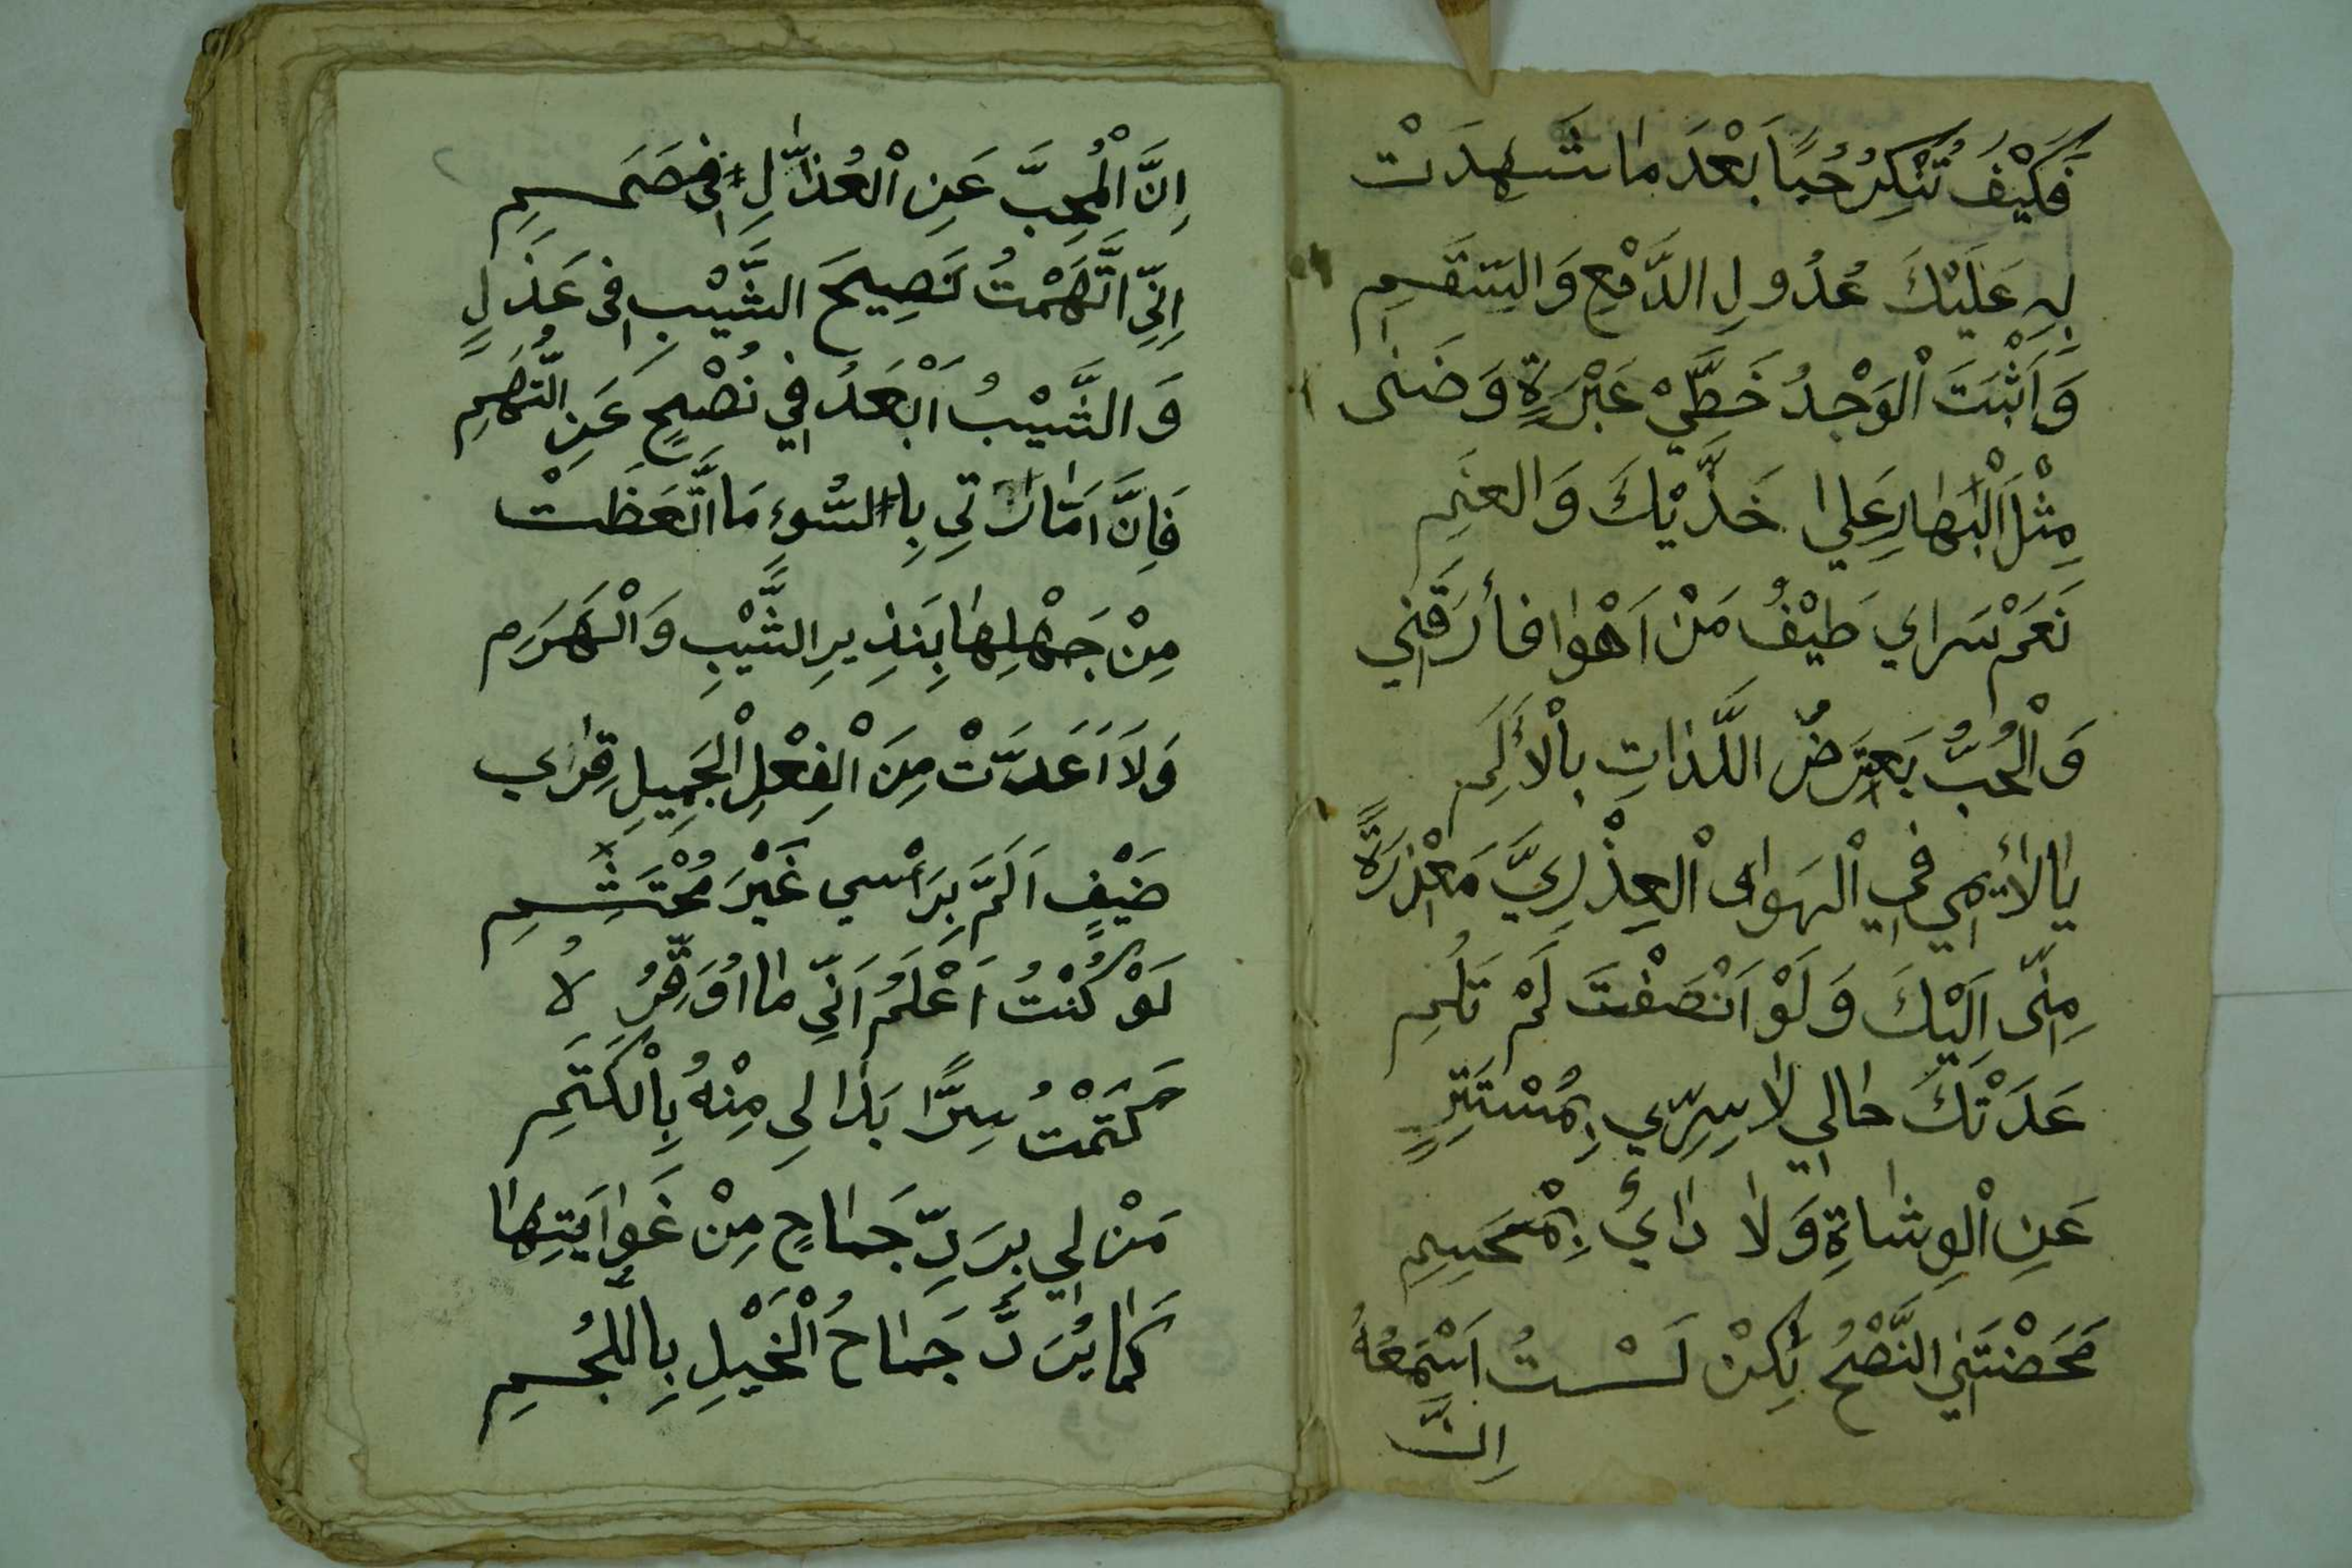 فَكَيْفَ تُنْكِرُ حُبًّا بَعْدَ مَا شَهِدَتْ
بِهِ عَلَيْكَ عُدُولِ الدَّمْعِ وَالسَّقَمِ
وَاَثْبَتَ الْوَجْدُ خَطَّيْ عَبْرَةٍ وَضَنٰى
مِثْلَ الْبَهَارِ عَلٰي خَدَّيْكَ وَالعَنَمِ
نَعَمْ سَرَاي طَيْفُ مَنْ اَهْوٰا فأرَّقَنِي
وَالْحُبُّ يَعْتَرِضُ اللَّذَاتِ بِالْأَلَمِ
يَا لَائِمِي فِي الْهَوٰى الْعِذْرِيَّ مَعْذِرَةً
مِنِّى اِلَيْكَ وَلَوْ اَنْصَفْتَ لَمْ تَلُمِ
عَدَتْكَ حَالِي لَا سِرِّي بِمُسْتَتِرٍ
عَنِ الْوِشَاةِ وَلَا دَائُ بِمُنْحَسِمِ
مَحَضْتَنِي النَّصْحُ لٰكِنْ لَسْتُ اَسْمَعُهُ
اِنَّ
اِنَّ الْمُحِبَّ عَنِ الْعُذَّالِ فِى صَمَمِ
اِنِّي اتَّهَمْتُ نَصِيحَ الشَّيْبِ فِى عَذَلٍ
وَالشَّيْبُ اَبْعَدُ فِي نُصْحٍ عَنِ التُّهَمِ
فَاِنَّ اَمَّارَتِي بِالسُّوءِ مَا اتَّعَظَتْ
مِنْ جَهْلِهَا بِنَذِيرِ الشَّيْبِ وَالْهَرَمِ
وَلَا اَعَدَّتْ مِنَ الْفِعْلِ الْجَمِيلِ قِرَاي
ضَيْفٍ اَلَمَّ بِرَاْسِي غَيْرَ مُحْتَشِمِ
لَوْ كُنْتُ اَعْلَمُ اَنِّي مَا اُوَقِّرُ لاُ
كَتَمْتُ سِرًّا بَدَا لِي مِنْهُ بِالْكَتَمِ
مَنْ لِي بِرَدِّ جَمَاحٍ مِنْ غَوَايَتِهَا
كَمَا يُرَدُّ جَمَاحُ الْخَيْلِ بِاللُّجُمِ